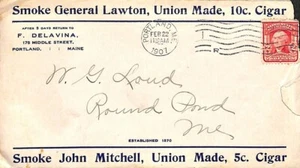 Smoke General Lawton, Union Made, 10c. Cigar
AFTER 5 DAYS RETURN TO
F. DELAVINA,
175 MIDDLE STREET,
PORTLAND, MAINE
PORTLAND, ME.
FEB 22
1907
W. G. Loud
Round Pond
Me.
ESTABLISHED 1870
Smoke John Mitchell, Union Made, 5c. Cigar